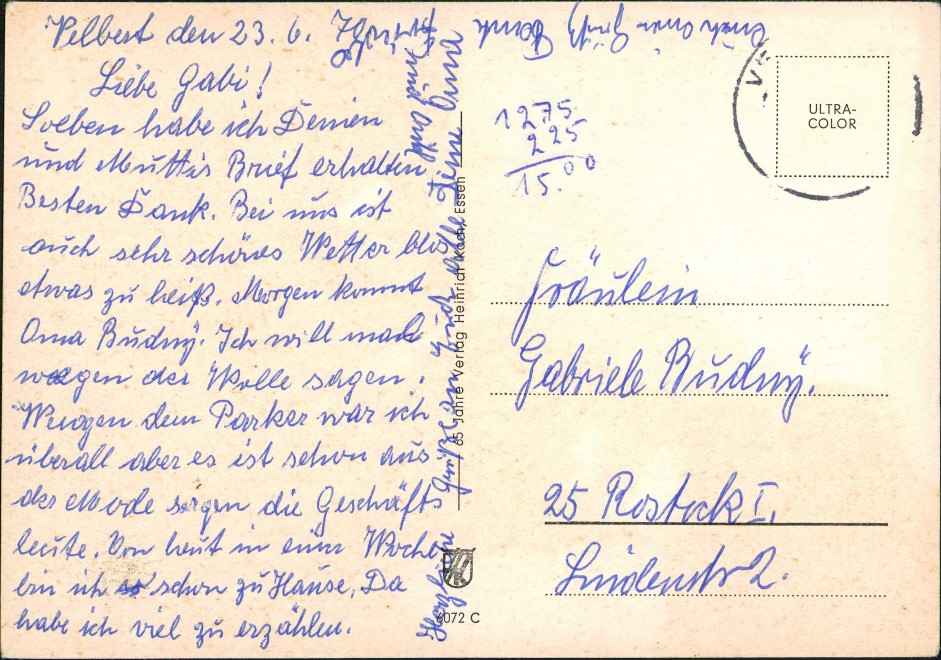 Velbert den 23. 6.
Liebe Gabi!
Soeben habe ich Deinen
und Muttis Brief erhalten
Besten Dank. Bei uns ist
auch sehr schönes Wetter blos
etwas zu heiß. Morgen kommt
Oma Budny. Ich will mal
wegen der Wolle sagen.
Wegen dem Parker war ich
überall aber es ist schon aus
der Mode sagen die Geschäfts
leute. Von heut in einer Woche
bin ich schon zu Hause. Da
habe ich viel zu erzählen.
Herzliche Grüße an Euch alle Deine Oma
und Opa
Auch einen Gruß
65 Jahre Verlag Heinrich Koch, Essen
6072 C
1275
225
15.00
V
ULTRA-
COLOR
Fräulein
Gabriele Budny.
25 Rostock I.
Lindenstr 2.